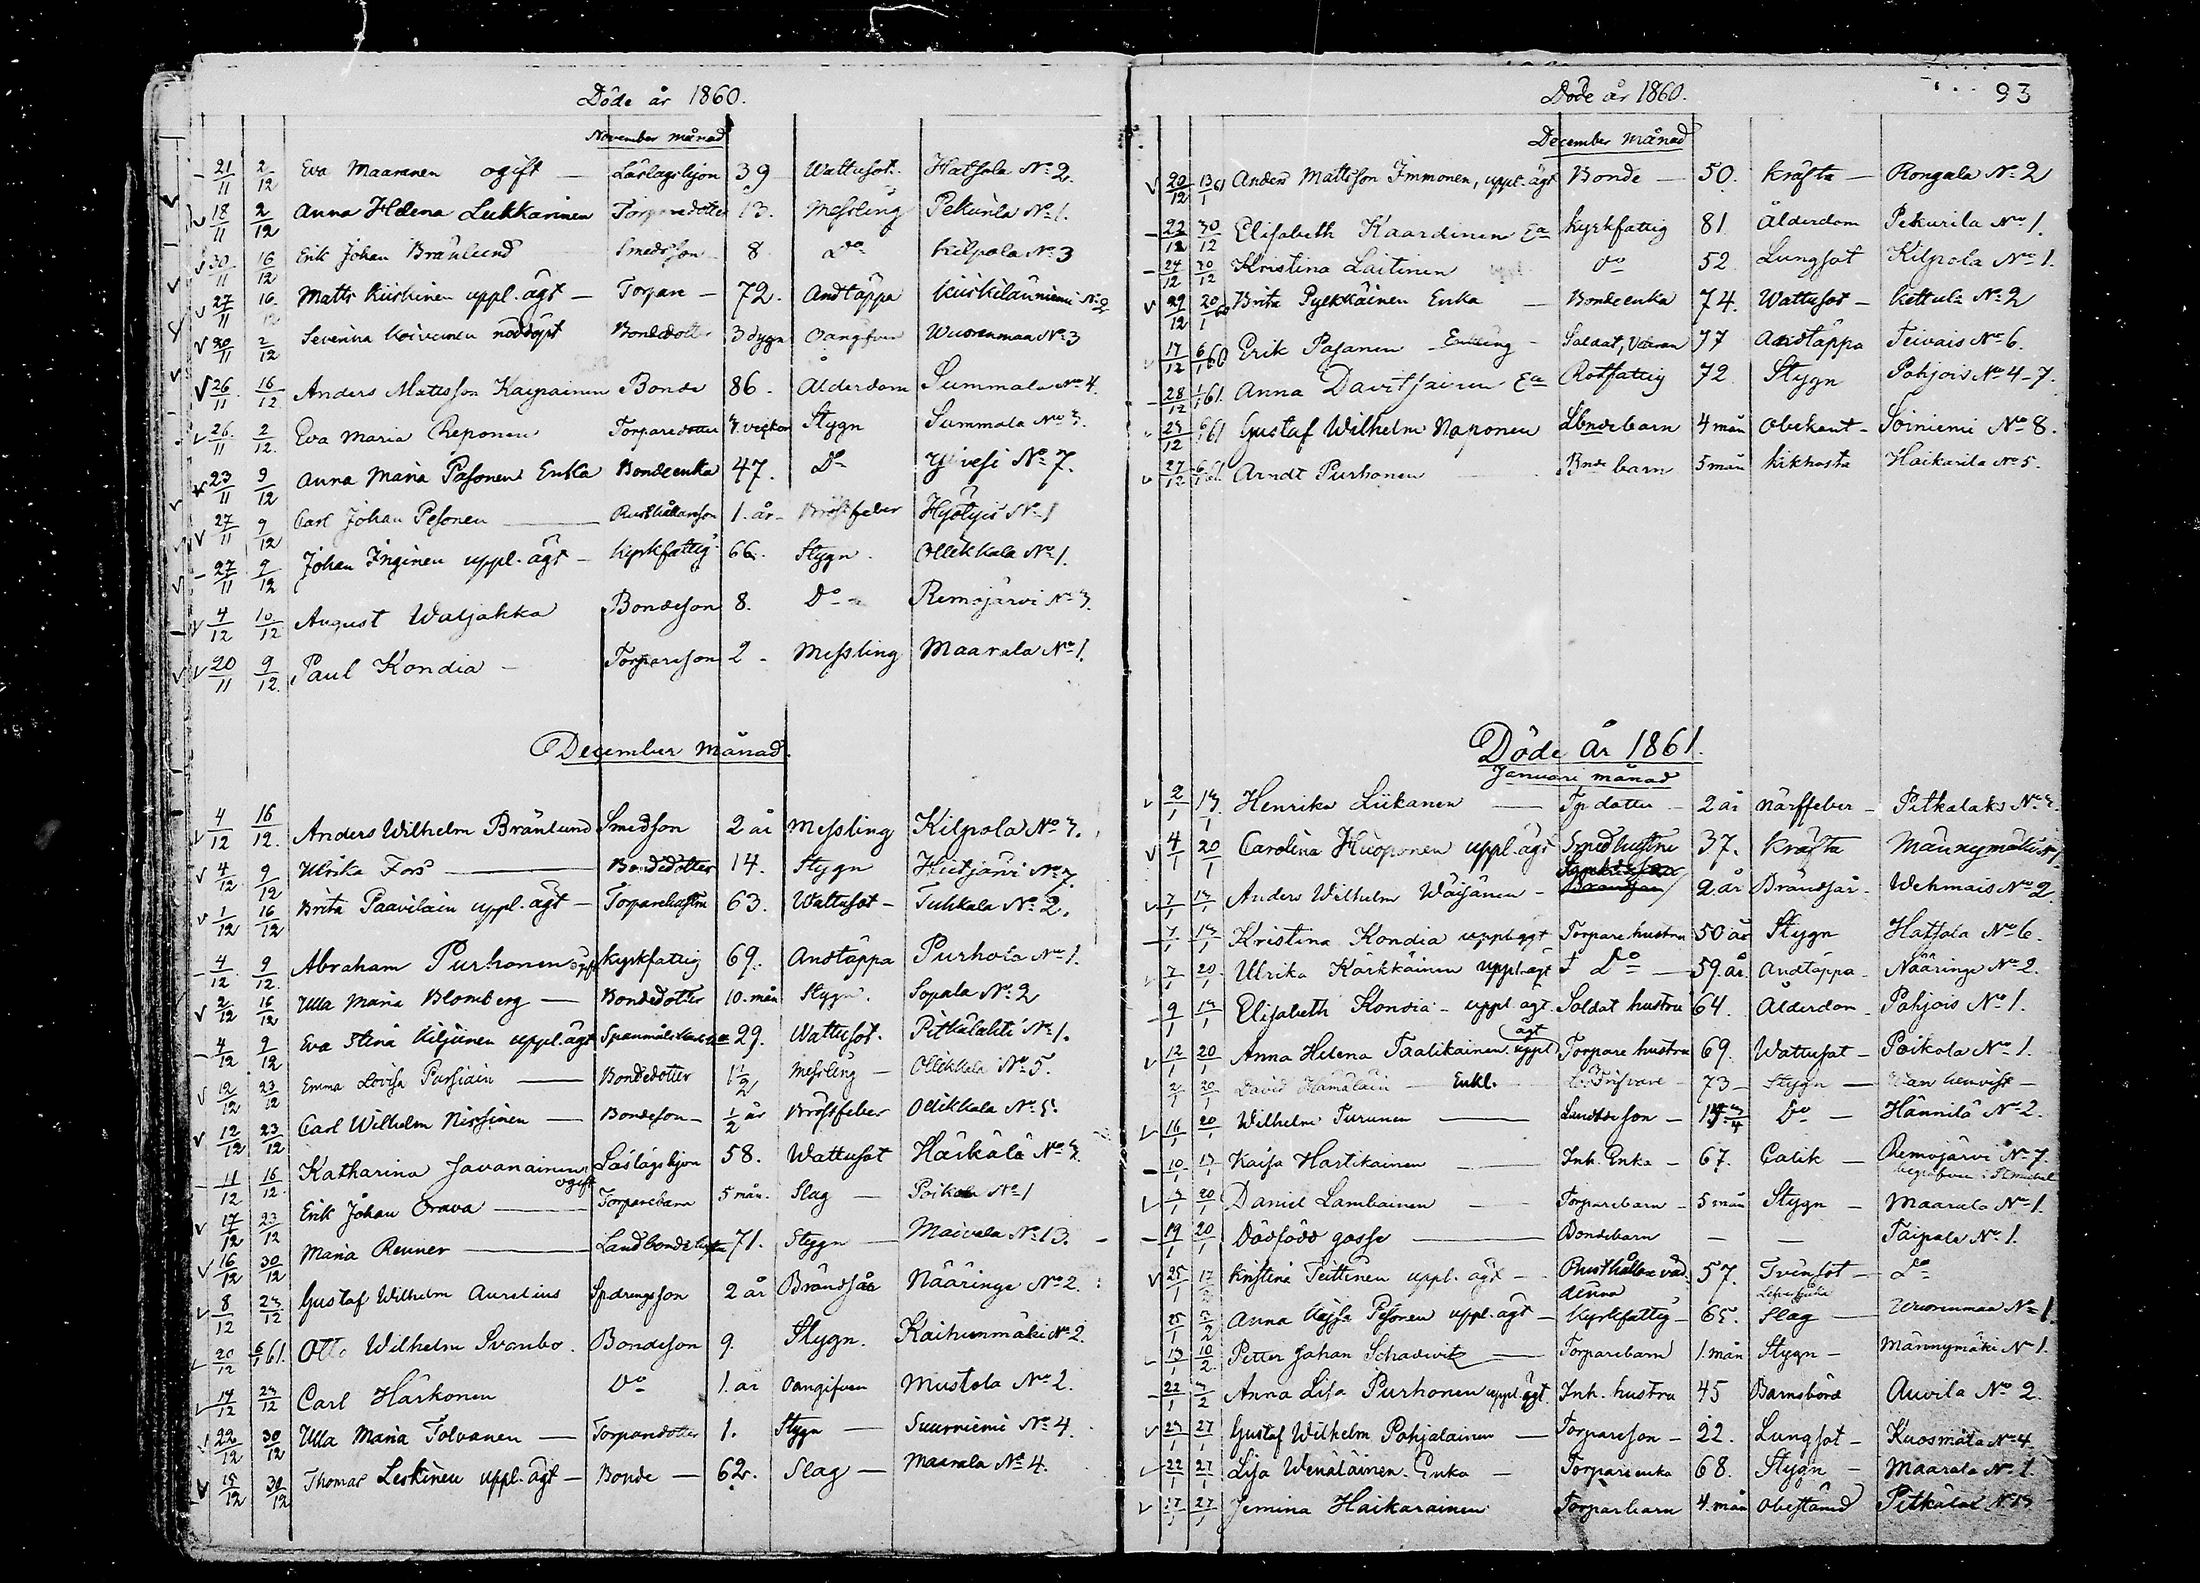 Döde år 1860.
November månad
21/11 2/12 Eva Maaranen ogift — Låslagshjon 39 Wattusot. Hatsola No 2.
18/11 2/12 Anna Helena Lukkarinen Torparedotter 13. Messling Pekurila No 1.
30/11 16/12 Erik Johan Bränlund Smedsson 8 Do Kilpola No 3
27/11 16/12 Matts Kiiskinen uppl. ägt — Torpare — 72. Andtäppa Kiiskilänniemi No 2
20/11 2/12 Severina Koivunen nöddöpt Bondedotter 3 dygn Oangifven Wuorenmaa No 3
26/11 16/12 Anders Mattsson Karpainen Bonde 86. Ålderdom Summala No 4.
26/11 2/12 Eva Maria Reponen Torparedotter 3. veckor Stygn Summala No 3.
23/11 9/12 Anna Maria Pasonen Enka Bondeenka 47. Do Ylivesi No 7.
27/11 9/12 Carl Johan Pesonen — Rusthållarson 1. år — Bröstfeber Hyötyis No 1
27/11 9/12 Johan Inginen uppl. ägt — Kyrkfattig 66. Stygn. Ollikkala No 1.
4/12 10/12 August Waljakka Bondeson 8. Do Remojärvi No 3.
20/11 9/12 Paul Kondia — Torpareson 2 — Messling Maarala No 1.
December månad.
4/12 16/12 Anders Wilhelm Bränlund Smedson 2 år Messling Kilpola No 3.
4/12 9/12 Ulrika Fors — Bondedotter 14. Stygn Hietjärvi No 7.
1/12 16/12 Brita Paavilain uppl. ägt — Torparehustru 63. Wattusot — Tuhkala No 2.
4/12 9/12 Abraham Purhonen ogift Kyrkfattig 69. Andtäppa Purhola No 1.
2/12 16/12 Ulla Maria Blomberg — Bondedotter 10. mån Stygn. Sopala No 2
4/12 9/12 Eva Stina Kiljunen uppl. ägt 29. Wattusot. Pitkälahti No 1.
12/12 23/12 Emma Lovisa Pursiain — Bondedotter 1 1/2 Messling — Ollikkala No 5.
12/12 23/12 Carl Wilhelm Nissinen — Bondeson — 1/2 år Bröstfeber Ollikkala No 5.
11/12 16/12 Katharina Javanainen ogift Låslagshjon 58. Wattusot Härkälä No 3.
17/12 23/12 Erik Johan Orava — Torparebarn 5 mån. Slag — Poikola No 1
16/12 30/12 Maria Renner — Landbondehustru 71. Stygn — Maivala No 13. —
8/12 23/12 Gustaf Wilhelm Aurelius 2 år Brändsår Nääringe No 2.
20/12 6/1 61. Otto Wilhelm Svanbo. Bondeson 9. Stygn. Kaihunmäki No 2.
14/12 23/12 Carl Härkönen Do 1. år Oangifven Mustola No 2.
22/12 30/12 Ulla Maria Tolvanen — Torparedotter 1. Stygn — Suurniemi No 4.
15/12 30/12 Thomas Leskinen uppl. ägt — Bonde — 62. Slag — Maarala No 4.
Döde år 1860. 93
December Månad
20/12 13/1 61 Anders Mattsson Immonen, uppl. ägt Bonde — 50. Kräfta — Rongala No 2
22/12 30/12 Elisabeth Kaardinen Ea Kyrkfattig 81 Ålderdom Pekurila No 1.
24/12 30/12 Kristina Laitinen Do 52 Lungsot Kilpola No 1.
29/12 20/1 Brita Pylkkäinen Enka — Bondeenka 74. Wattusot — Kettula No 2
17/12 6/1 60 Erik Pasanen — Enkling — Soldat, 77 Andtäppa Teivais No 6.
28/12 1/1 61. Anna Davitsainen Ea Rotfattig 72 Stygn Pohjois No 4–7.
23/12 6/1 61 Gustaf Wilhelm Naponen Lbndebarn 4 mån Obekant — Soiniemi No 8.
27/12 6/1 61. Arndt Purhonen — Bndebarn 5 mån Kikhosta Haikarila No 5.
Döde år 1861.
Januari månad
2/1 13/1 Henrika Liikanen — Tp dotter — 2 år Närffeber — Pitkalaks No 3.
4/1 20/1 Carolina Huoponen uppl. ägt Smedhustru 37. Kräfta Männymäki No 1
7/1 13/1 Anders Wilhelm Wäisänen — 2. år Brändsår — Wehmais No 2.
7/1 13/1 Kristina Kondia uppl. ägt Torparehustru 50 år Stygn Hatsola No 6.
7/1 20/1 Ulrika Kärkkäinen uppl. ägt Do — 59. år Andtäppa — Nääringe No 2.
9/1 13/1 Elisabeth Kondia — uppl. ägt. Soldat hustru 64. Ålderdom — Pohjois No 1.
12/1 20/1 Anna Helena Taalikainen. uppl ägt Torpare hustru 69. Wattusot — Poikola No 1.
2/1 20/1 David Hämäläin — Enkl. 73 — Stygn — Utan hemvist —
16/1 20/1 Wilhelm Turunen — Landbdeson — 3/4 Do — Hännilä No 2.
10/1 13/1 Kaisa Hartikainen — Inh. Enka — 67. Colik — Remojärvi No 7
begrafven i St. Michel
20/1 Daniel Lambainen — Torparebarn — 5 mån Stygn — Maarala No 1.
19/1 20/1 Dödfödd gosse — Bondebarn — — Taipale No 1.
25/1 17/2 Kristina Teittinen uppl. ägt — Rusthållare 57. Tvinsot — Do
25/1 3/2 Anna Kajsa Pesonen uppl. ägt — Kyrkfattig — 65. Slag — Wuorenmaa No 1
13/1 10/2 Petter Johan Schadevitz — Torparebarn 1. mån Stygn — Männymäki No 1.
22/1 3/2 Anna Lisa Purhonen uppl. ägt. Inh. hustru 45 Barnsbörd Auvila No 2
23/1 27/1 Gustaf Wilhelm Pohjalainen — Torpareson — 22. Lungsot — Kuosmala No 4.
22/1 27/1 Lisa Wenäläinen. Enka — Torpareenka 68. Stygn — Maarala No 1.
17/1 27/1 Jemina Haikarainen Torparbarn 4. mån Obestämd Pitkälaks No 13